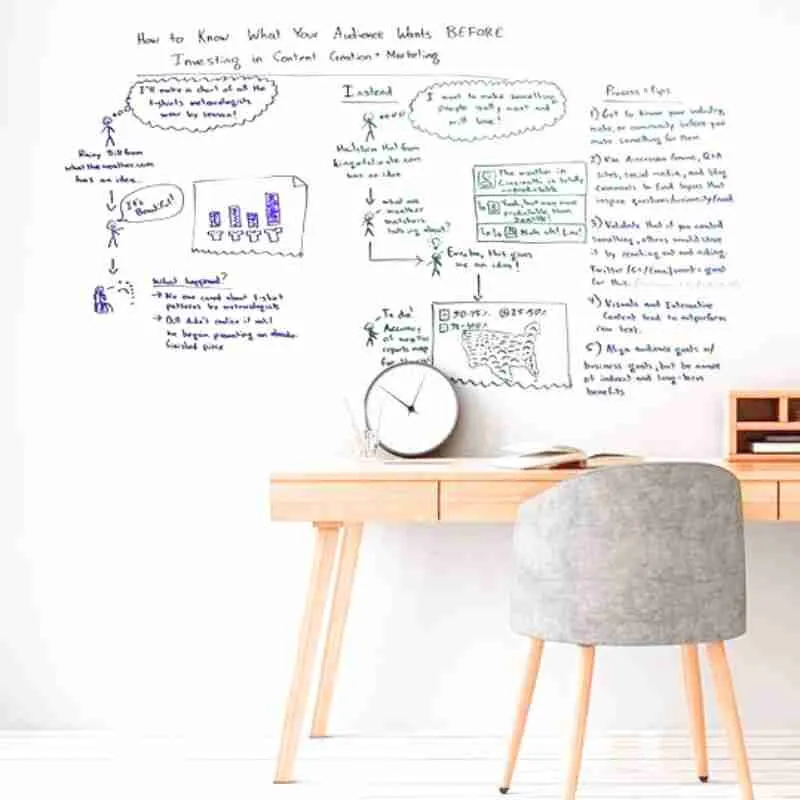 How to Know What Your Audience Wants BEFORE
Investing in Content Creation + Marketing
I'll make a chart of all the
t-shirts meteorologists
wear by season!
Rainy Bill from
what the weather.com
has an idea...
It's
Beautiful!
What happened?
→ No one cared about t-shirt
patterns by meteorologists
→ Bill didn't realize it until
he began promoting an
finished piece
Instead
I want to make something
people really want and
will love!
from
has an idea...
what are
weather
talking about?
The weather in
Cincinnati is totally
unpredictable
Yeah, but way more
predictable than
this gives
me an idea!
To do:
Accuracy
of weather
reports map
50-75%
25-50%
Process + Tips
1) Get to know your industry,
niche, or community before you
make something for them
2) Use discussion forums, Q+A
sites, social media, and blog
comments to find topics that
inspire questions/curiosity/need
3) Validate that if you created
something, others would share
it by reaching out and asking.
Twitter/G+/Email/ great
for this.
4) Visuals and Interactive
Content tend to outperform
raw text.
5) Align audience goals w/
business goals, but be aware
of indirect and long-term
benefits